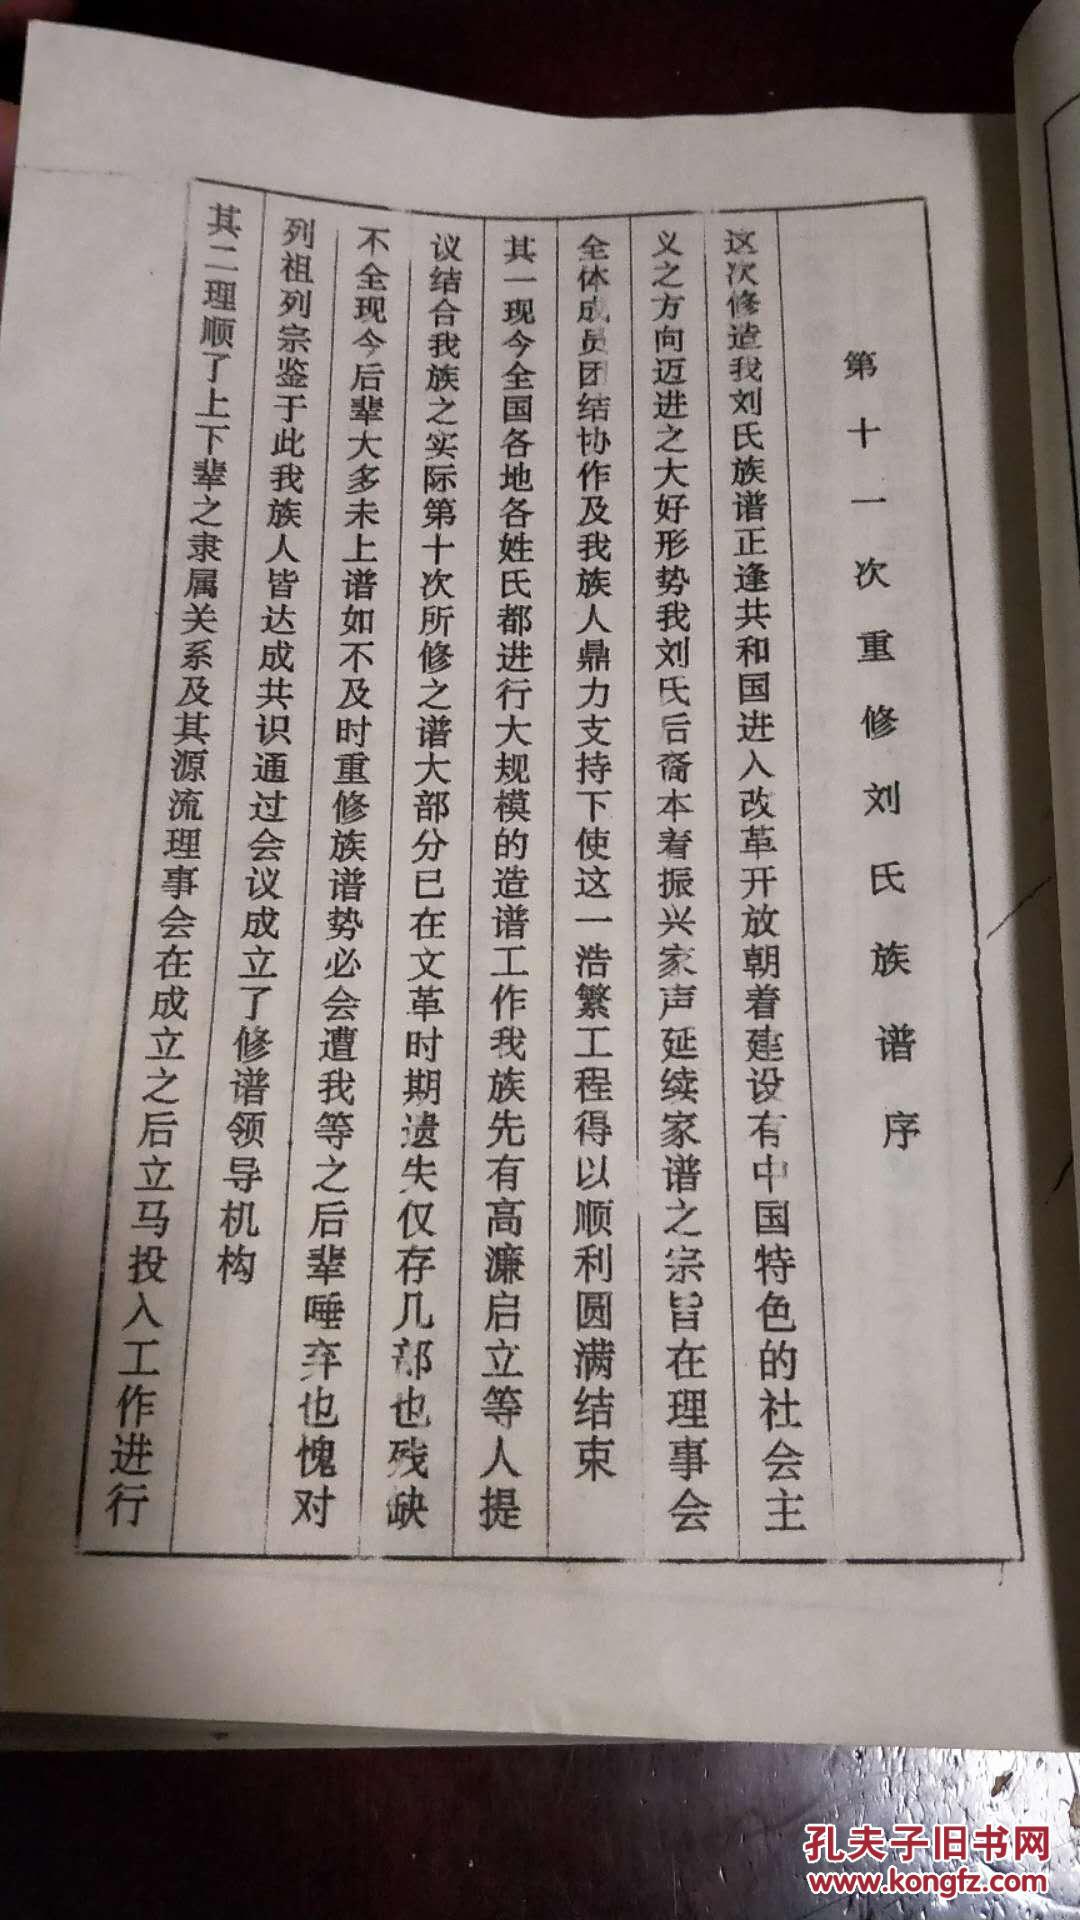 第十一次重修刘氏族谱序
这次修造我刘氏族谱正逢共和国进入改革开放朝着建设有中国特色的社会主
义之方向迈进之大好形势我刘氏后裔本着振兴家声延续家谱之宗旨在理事会
全体成员团结协作及我族人鼎力支持下使这一浩繁工程得以顺利圆满结束
其一现今全国各地各姓氏都进行大规模的造谱工作我族先有高濂启立等人提
议结合我族之实际第十次所修之谱大部分已在文革时期遗失仅存几部也残缺
不全现今后辈大多未上谱如不及时重修族谱势必会遭我等之后辈唾弃也愧对
列祖列宗鉴于此我族人皆达成共识通过会议成立了修谱领导机构
其二理顺了上下辈之隶属关系及其源流理事会在成立之后立马投入工作进行
孔夫子旧书网
www.kongfz.com